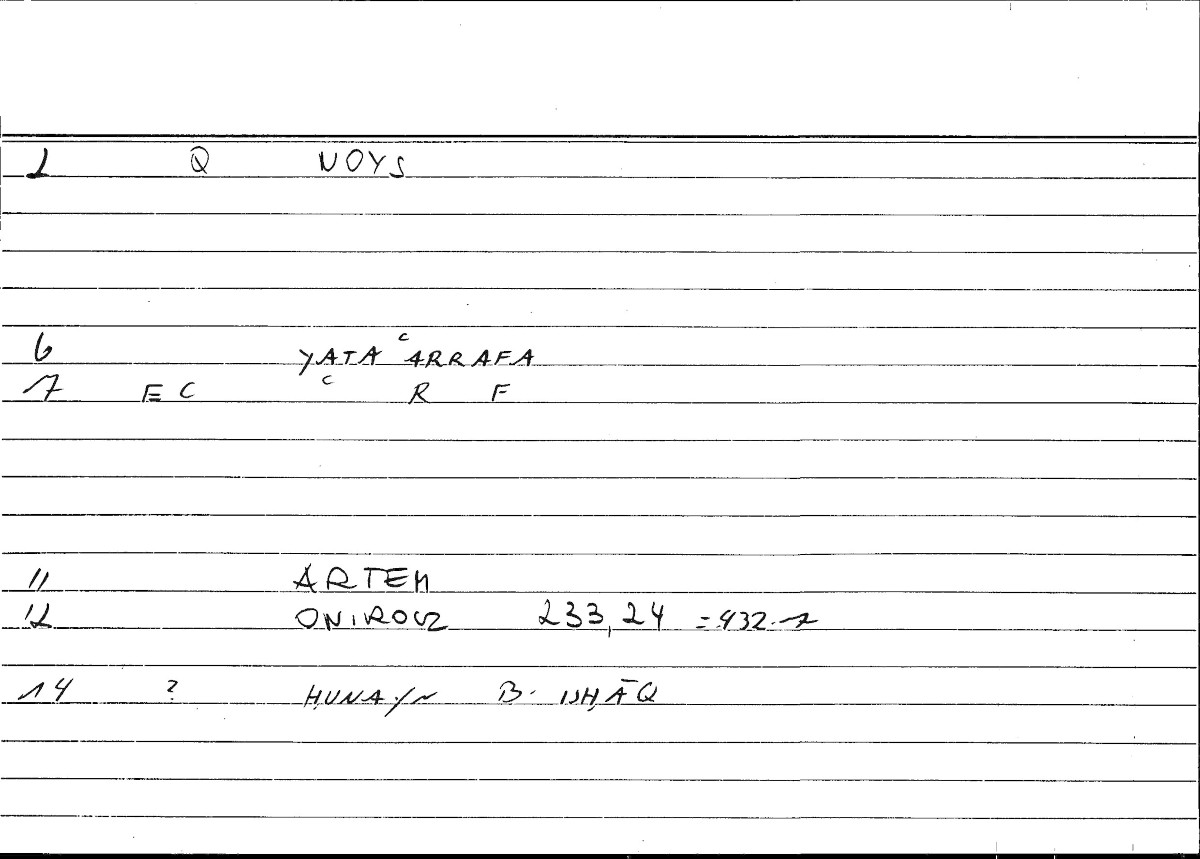 1 Q NOYS
6 YATAᶜARRAFA
7 EC ᶜ R F
11 ARTEM
12 ONIROCR 233,24 = 432.7
14 ? ḤUNAYN B. ISḤĀQ